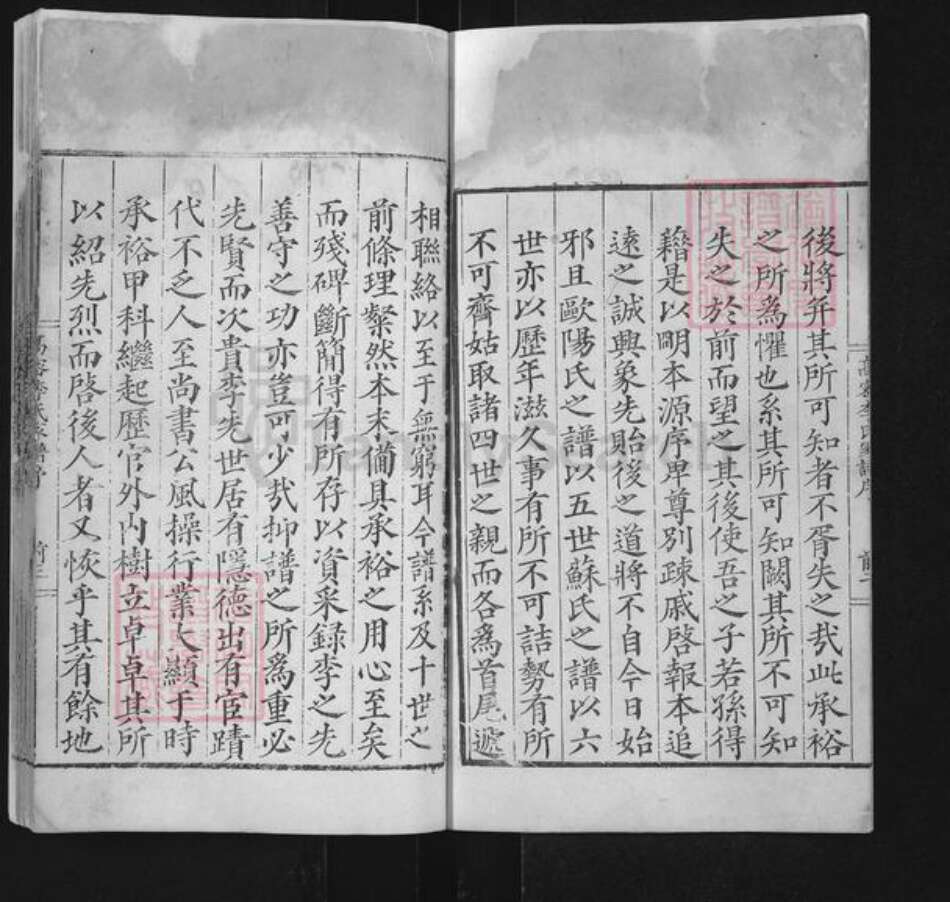 後將并其所可知者不胥失之㢤此承裕
之所爲懼也系其所可知闕其所不可知
失之於前而望之其後使吾之子若孫得
藉是以明本源序卑尊別疎戚啓報本追
遠之誠興象先貽後之道將不自今日始
邪且歐陽氏之譜以五世蘇氏之譜以六
世亦以歷年滋久事有所不可詰勢有所
不可齊姑取諸四世之親而各爲首尾遞
相聯絡以至于無窮耳今譜系及十世之
前條理粲然本末備具承裕之用心至矣
而殘碑斷簡得有所存以資采録李之先
善守之功亦豈可少㢤抑譜之所爲重必
先賢而次貴李先世居有隱德出有宦蹟
代不乏人至尚書公風操行業大顯于時
承裕甲科繼起歷官外内樹立卓卓其所
以紹先烈而啓後人者又恢乎其有餘地